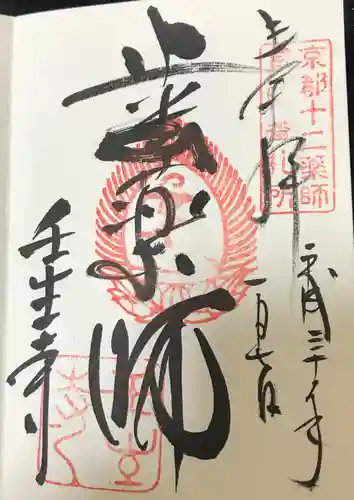 奉拝
京都十二薬師
平成三十年
一月七日
歯薬師
壬生寺